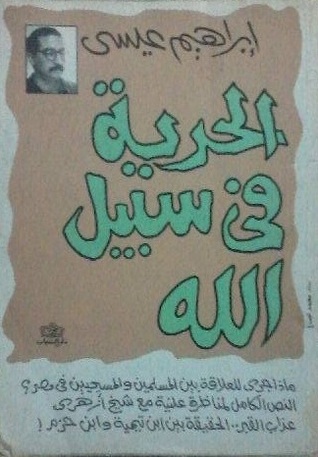 إبراهيم عيسى
الحرية
في سبيل
الله
ماذا جرى للعلاقة بين المسلمين والمسيحيين في مصر؟
النص الكامل لمناظرة علنية مع شيخ أزهرى
عذاب القبر.. الحقيقة بين ابن تيمية وابن حزم!